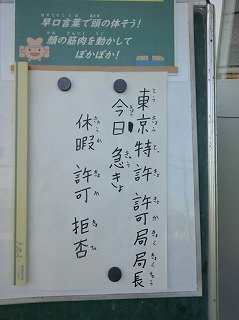 早口言葉で頭の体そう!
顔の筋肉を動かして
ぽかぽか!
東京特許許可局局長
今日急きょ
休暇許可拒否